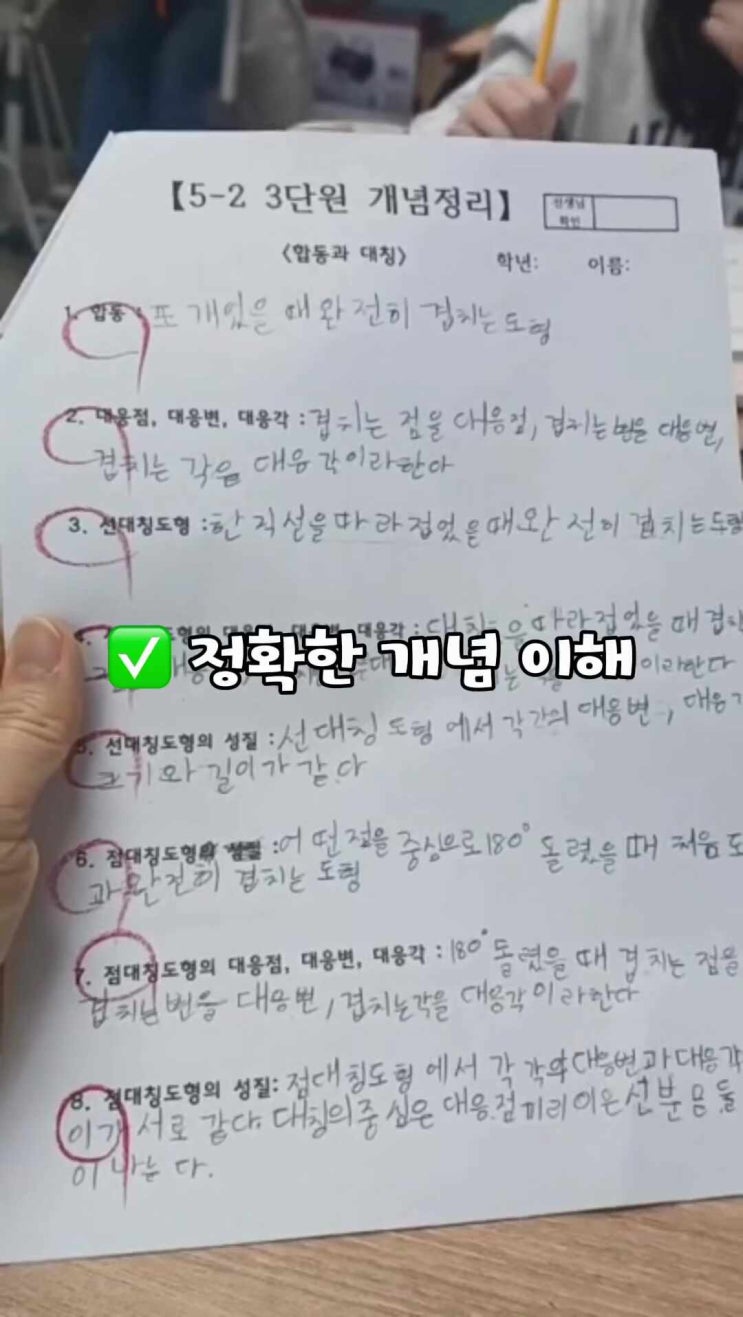 【5-2 3단원 개념정리】
선생님
확인
<합동과 대칭>
학년: 이름:
1. 합동 : 포개있을 때 완전히 겹치는 도형
2. 대응점, 대응변, 대응각 : 겹치는 점을 대응점, 겹치는 변을 대응변,
겹치는 각을 대응각이라한다
3. 선대칭도형 : 한 직선을 따라 접었을때 완전히 겹치는 도형
대응각 : 따라 접었을 때
✅ 정확한 개념 이해
이라한다
5. 선대칭도형의 성질 : 선대칭도형에서 각각의 대응변, 대응
크기와 길이가 같다
6. 점대칭도형 : 어떤점을 중심으로 180° 돌렸을 때 처음
과 완전히 겹치는 도형
7. 점대칭도형의 대응점, 대응변, 대응각 : 180° 돌렸을 때 겹치는 점을
겹치는 변을 대응변, 겹치는각을 대응각이라한다
8. 점대칭도형의 성질: 점대칭도형에서 각각의 대응변과 대응각
이가 서로 같다. 대칭의중심은 대응점끼리 이은선분을 둘
이 나눈다.